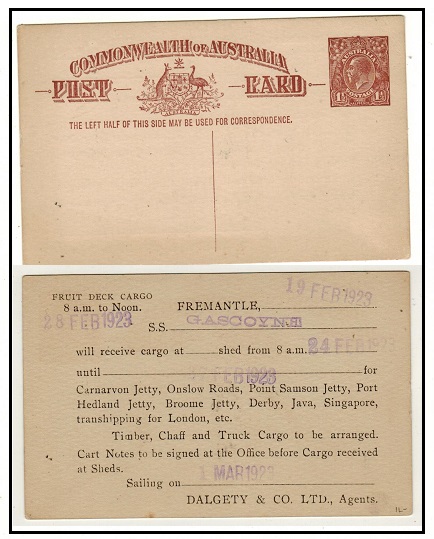 COMMONWEALTH OF AUSTRALIA
POST CARD
AUSTRALIA
THE LEFT HALF OF THIS SIDE MAY BE USED FOR CORRESPONDENCE.
AUSTRALIA
POSTAGE
1½ 1½
19 FEB 1923
FRUIT DECK CARGO
8 a.m. to Noon. FREMANTLE,
28 FEB 1923
S.S. GASCOYNE
will receive cargo at shed from 8 a.m. 24 FEB 1923
until FEB 1923 for
Carnarvon Jetty, Onslow Roads, Point Samson Jetty, Port
Hedland Jetty, Broome Jetty, Derby, Java, Singapore,
transhipping for London, etc.
Timber, Chaff and Truck Cargo to be arranged.
Cart Notes to be signed at the Office before Cargo received
at Sheds.
Sailing on 1 MAR 1923
DALGETY & CO. LTD., Agents.